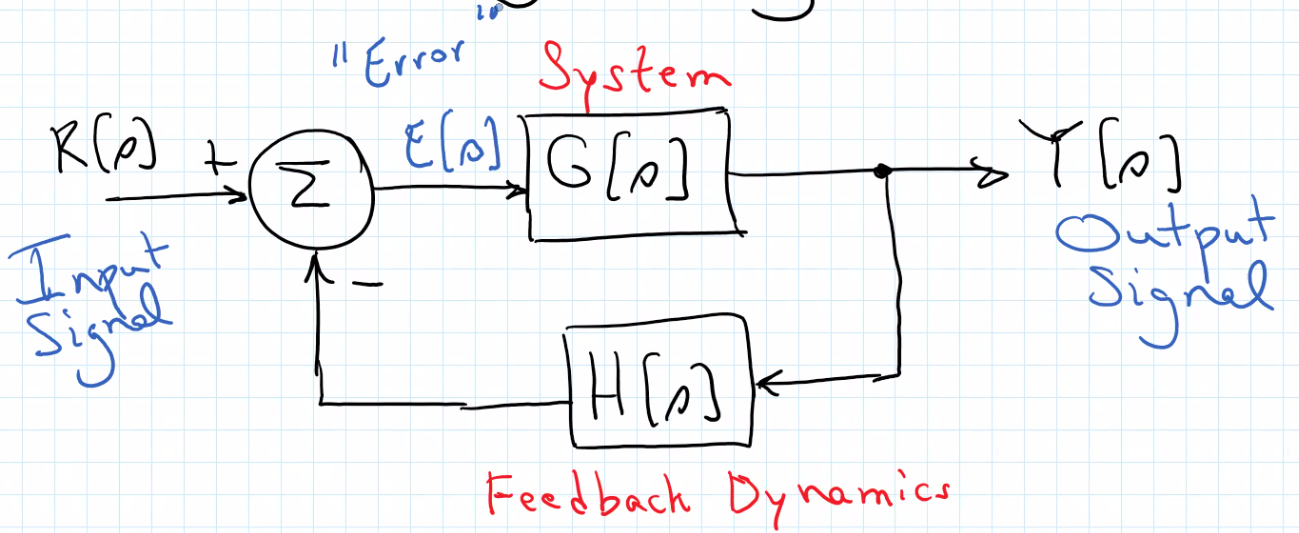 "Error"
System
R[s] + Σ E[s] G[s] Y[s]
Input
Signal
Output
Signal
−
H[s]
Feedback Dynamics